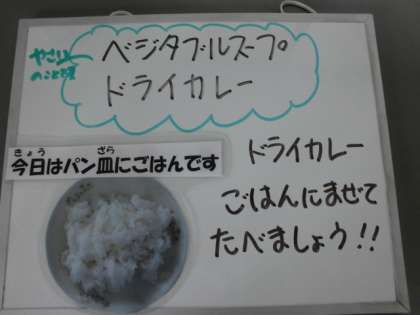 やさい
のことを
ベジタブルスープ
ドライカレー
きょう ざら
今日はパン皿にごはんです
ドライカレー
ごはんにまぜて
たべましょう!!